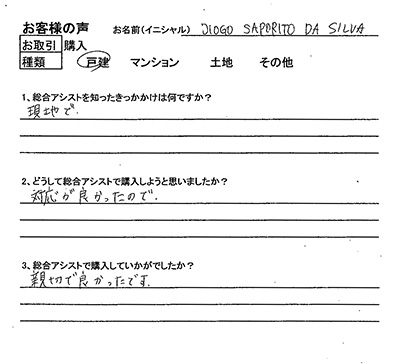 お客様の声 お名前(イニシャル) DIOGO SAPORITO DA SILVA
お取引 購入
種類 戸建 マンション 土地 その他
1、総合アシストを知ったきっかけは何ですか?
現地で.
2、どうして総合アシストで購入しようと思いましたか?
対応が良かったので.
3、総合アシストで購入していかがでしたか?
親切で良かったです.